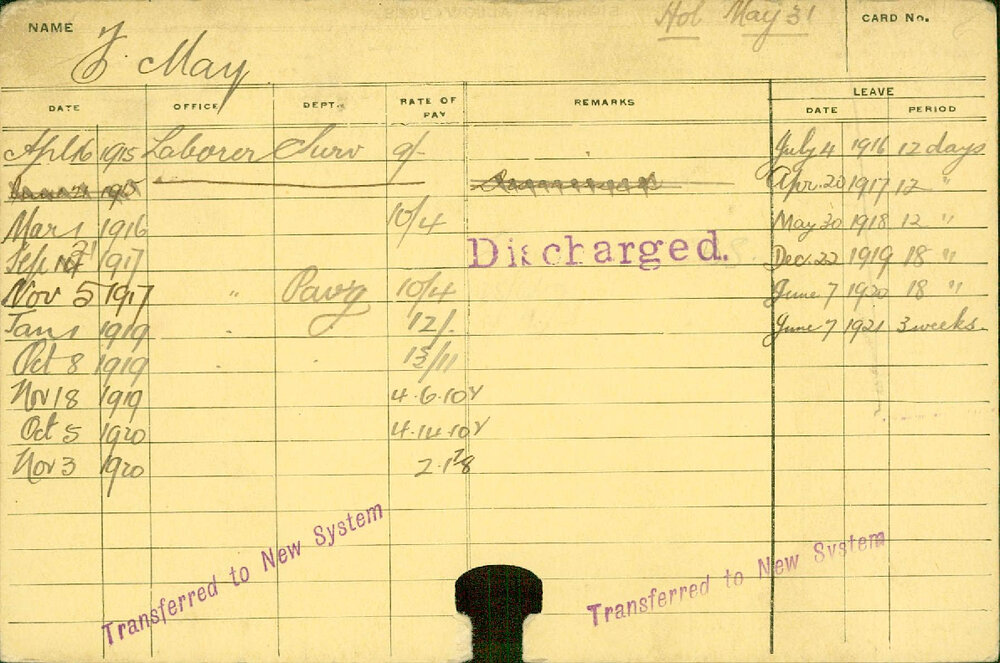 Hol May 31
NAME
CARD No.
F. May
DATE OFFICE DEPT. RATE OF PAY REMARKS LEAVE
DATE PERIOD
April 16 1915 Laborer Surv 9/- July 4 1916 12 days
Apr. 20 1917 12 "
Mar 1 1916 10/4 May 30 1918 12 "
Sep 1917 Discharged. Dec. 22 1919 18 "
Nov 5 1917 " Pavg 10/4 June 7 1920 18 "
Jan 1 1919 " 12/- June 7 1921 3 weeks.
Oct 8 1919 13/11
Nov 18 1919 4.6.10
Oct 5 1920 4.14.10
Nov 3 1920
Transferred to New System
Transferred to New System